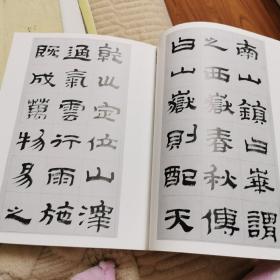 南山鎮曰華謂
之西嶽春秋傳
曰山嶽則配天
乾巛定位山澤
通氣雲行雨施
既成萬物易之